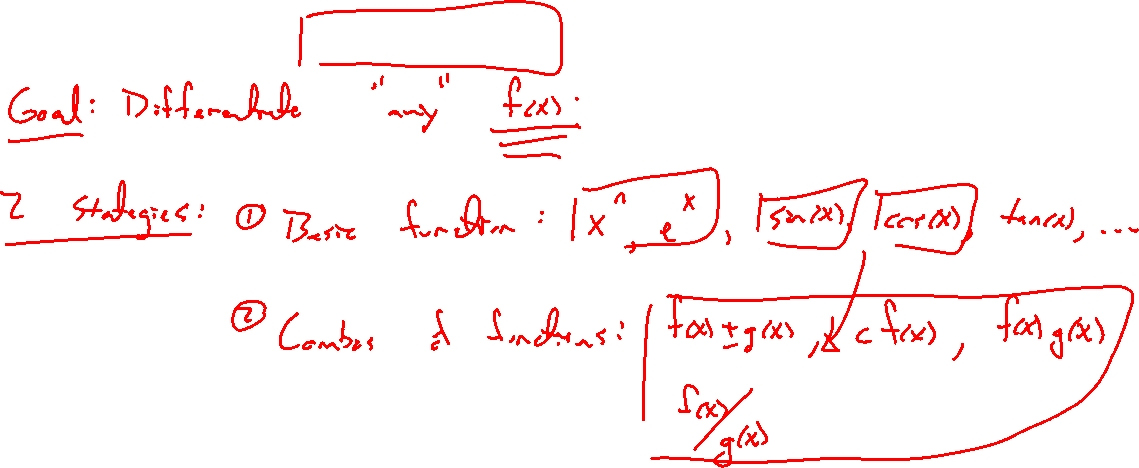 Goal: Differentiate "any" f(x).
2 Stategies: ① Basic function: xⁿ, eˣ, sin(x), cos(x), tan(x), ...
② Combos of functions: f(x) ± g(x), c f(x), f(x) g(x)
f(x)/g(x)